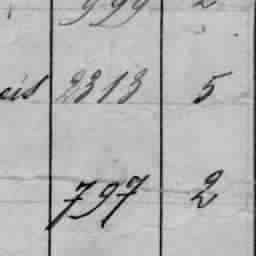 999 2
2313 5
797 2